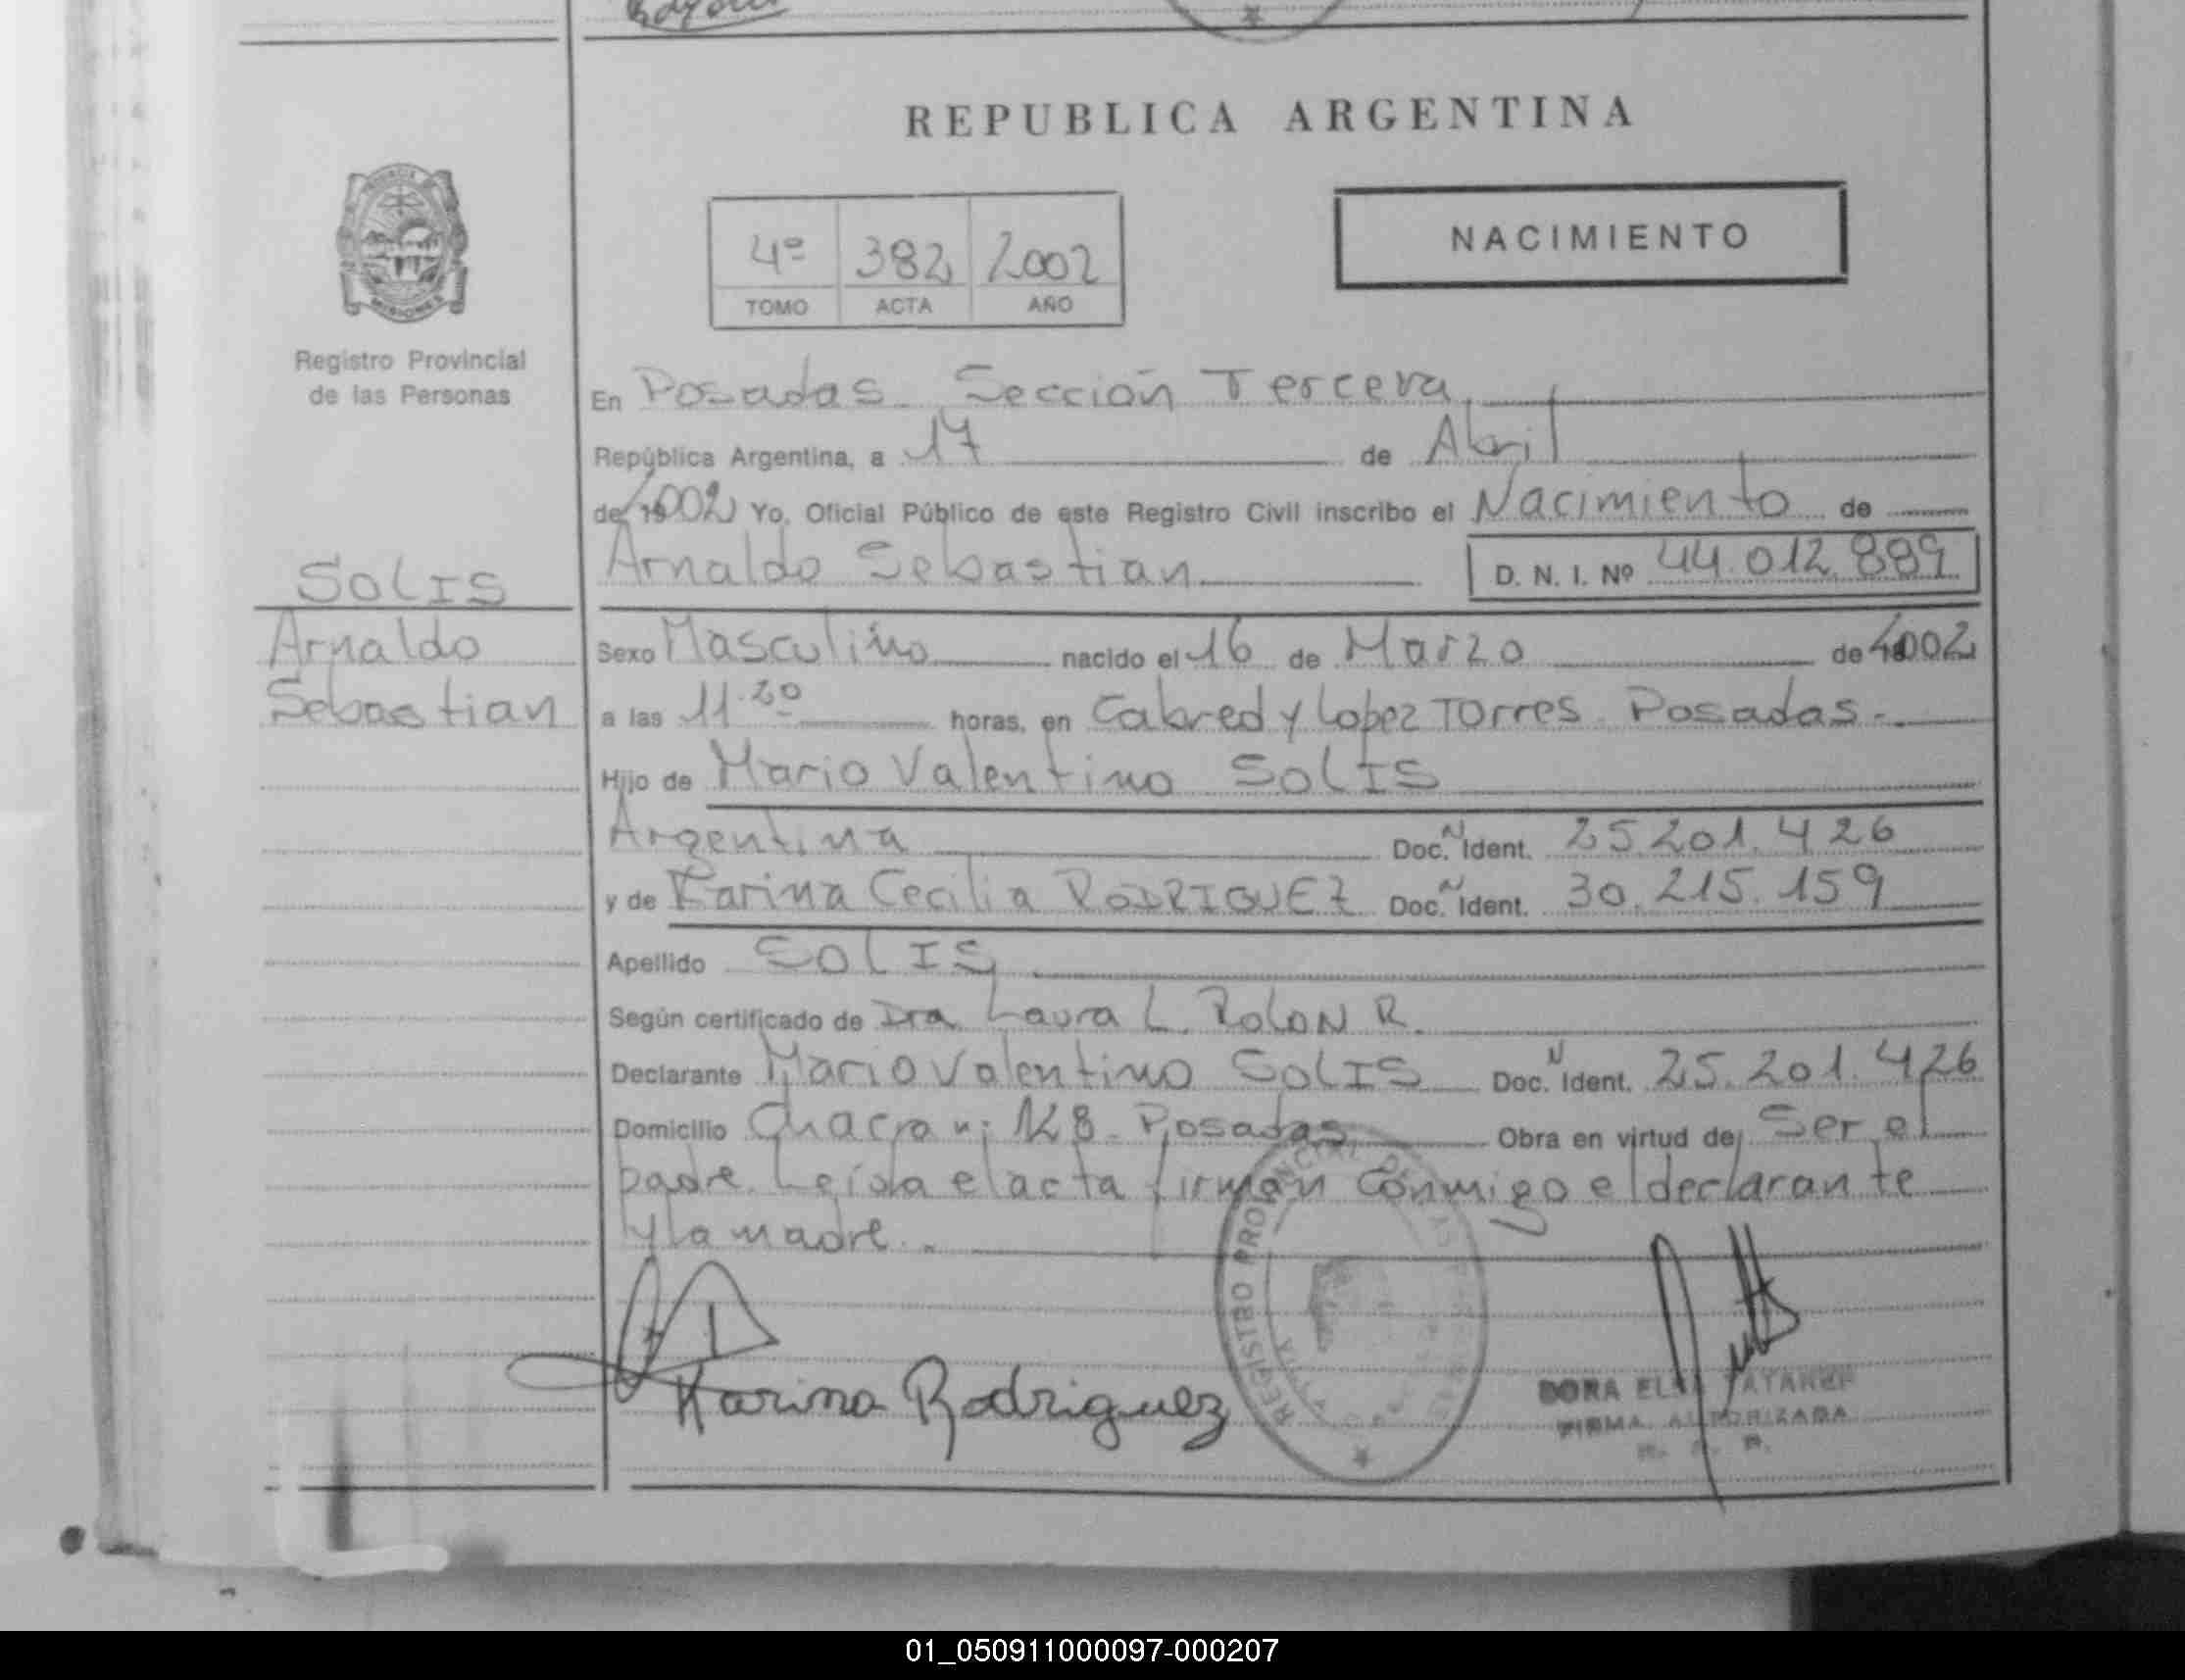 REPUBLICA ARGENTINA
4º 382 2002
TOMO ACTA AÑO
NACIMIENTO
PROVINCIA
MISIONES
Registro Provincial
de las Personas
SOLIS
Arnaldo
Sebastian
En Posadas. Sección Tercera
República Argentina, a 17 de Abril
de 2002 Yo, Oficial Público de este Registro Civil inscribo el Nacimiento de
Arnaldo Sebastian D. N. I. Nº 44.012.889
Sexo Masculino nacido el 16 de Marzo de 2002
a las 11.20 horas, en Cabred y Lopez Torres. Posadas.-
Hijo de Mario Valentino SOLIS
Argentina Doc. Ident. 25.201.426
y de Karina Cecilia RODRIGUEZ Doc. Ident. 30.215.159
Apellido SOLIS
Según certificado de Dra. Laura L. ROLON R.
Declarante Mario Valentino SOLIS Doc. Ident. 25.201.426
Domicilio Chacra n: 128. Posadas Obra en virtud de Ser el
padre. Leída el acta firman conmigo el declarante
y la madre.
Karina Rodriguez
REGISTRO PROVINCIAL DE LAS
DORA
FIRMA AUTORIZADA